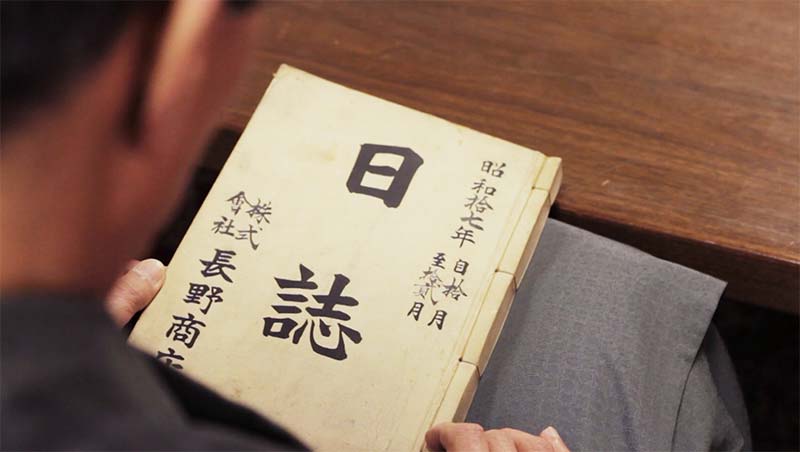 昭和拾七年 自拾月
至拾貳月
日誌
株式會社 長野商店